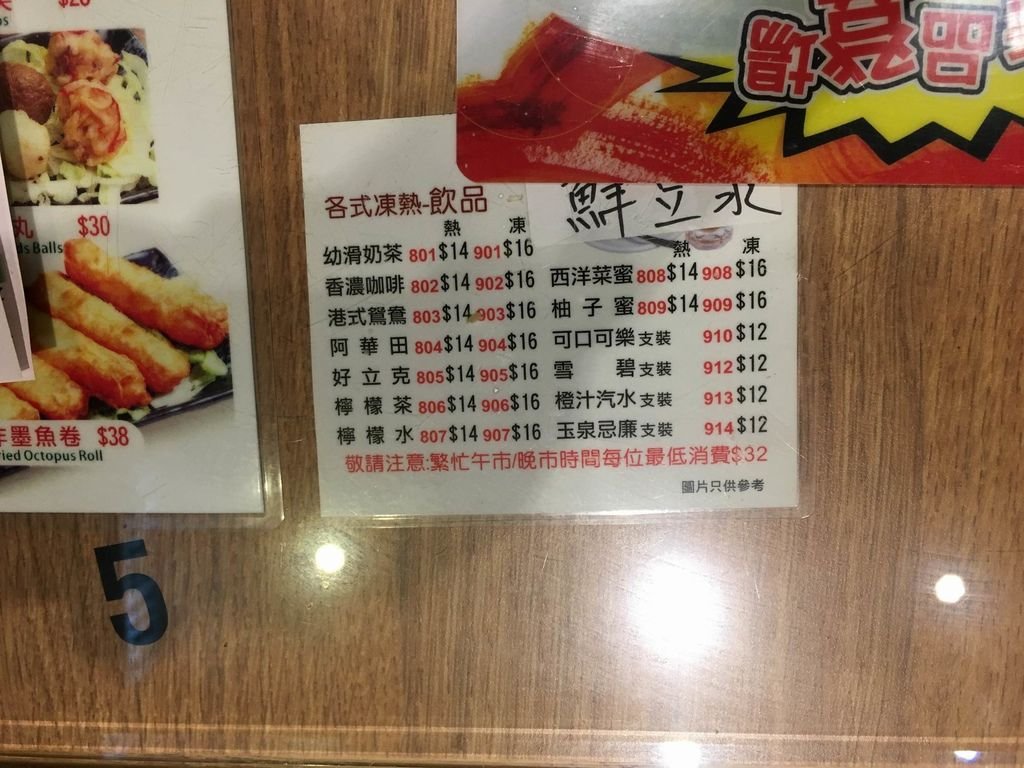 $20
$30
ds Balls
墨魚卷 $38
ried Octopus Roll
5
品登場
鮮立水
各式凍熱-飲品
熱 凍
幼滑奶茶 801 $14 901 $16
香濃咖啡 802 $14 902 $16
港式鴛鴦 803 $14 903 $16
阿華田 804 $14 904 $16
好立克 805 $14 905 $16
檸檬茶 806 $14 906 $16
檸檬水 807 $14 907 $16
熱 凍
西洋菜蜜 808 $14 908 $16
柚子蜜 809 $14 909 $16
可口可樂支裝 910 $12
雪碧支裝 912 $12
橙汁汽水支裝 913 $12
玉泉忌廉支裝 914 $12
敬請注意:繁忙午市/晚市時間每位最低消費$32
圖片只供參考